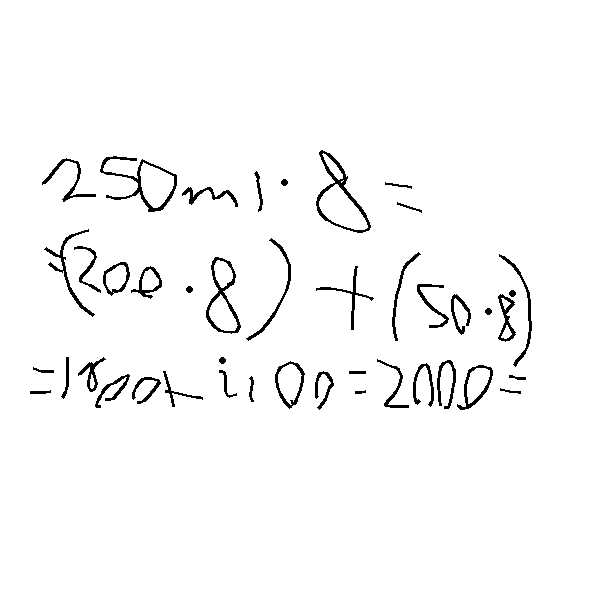 250ml·8=
=(200·8)+(50·8)
=1600+400=2000=